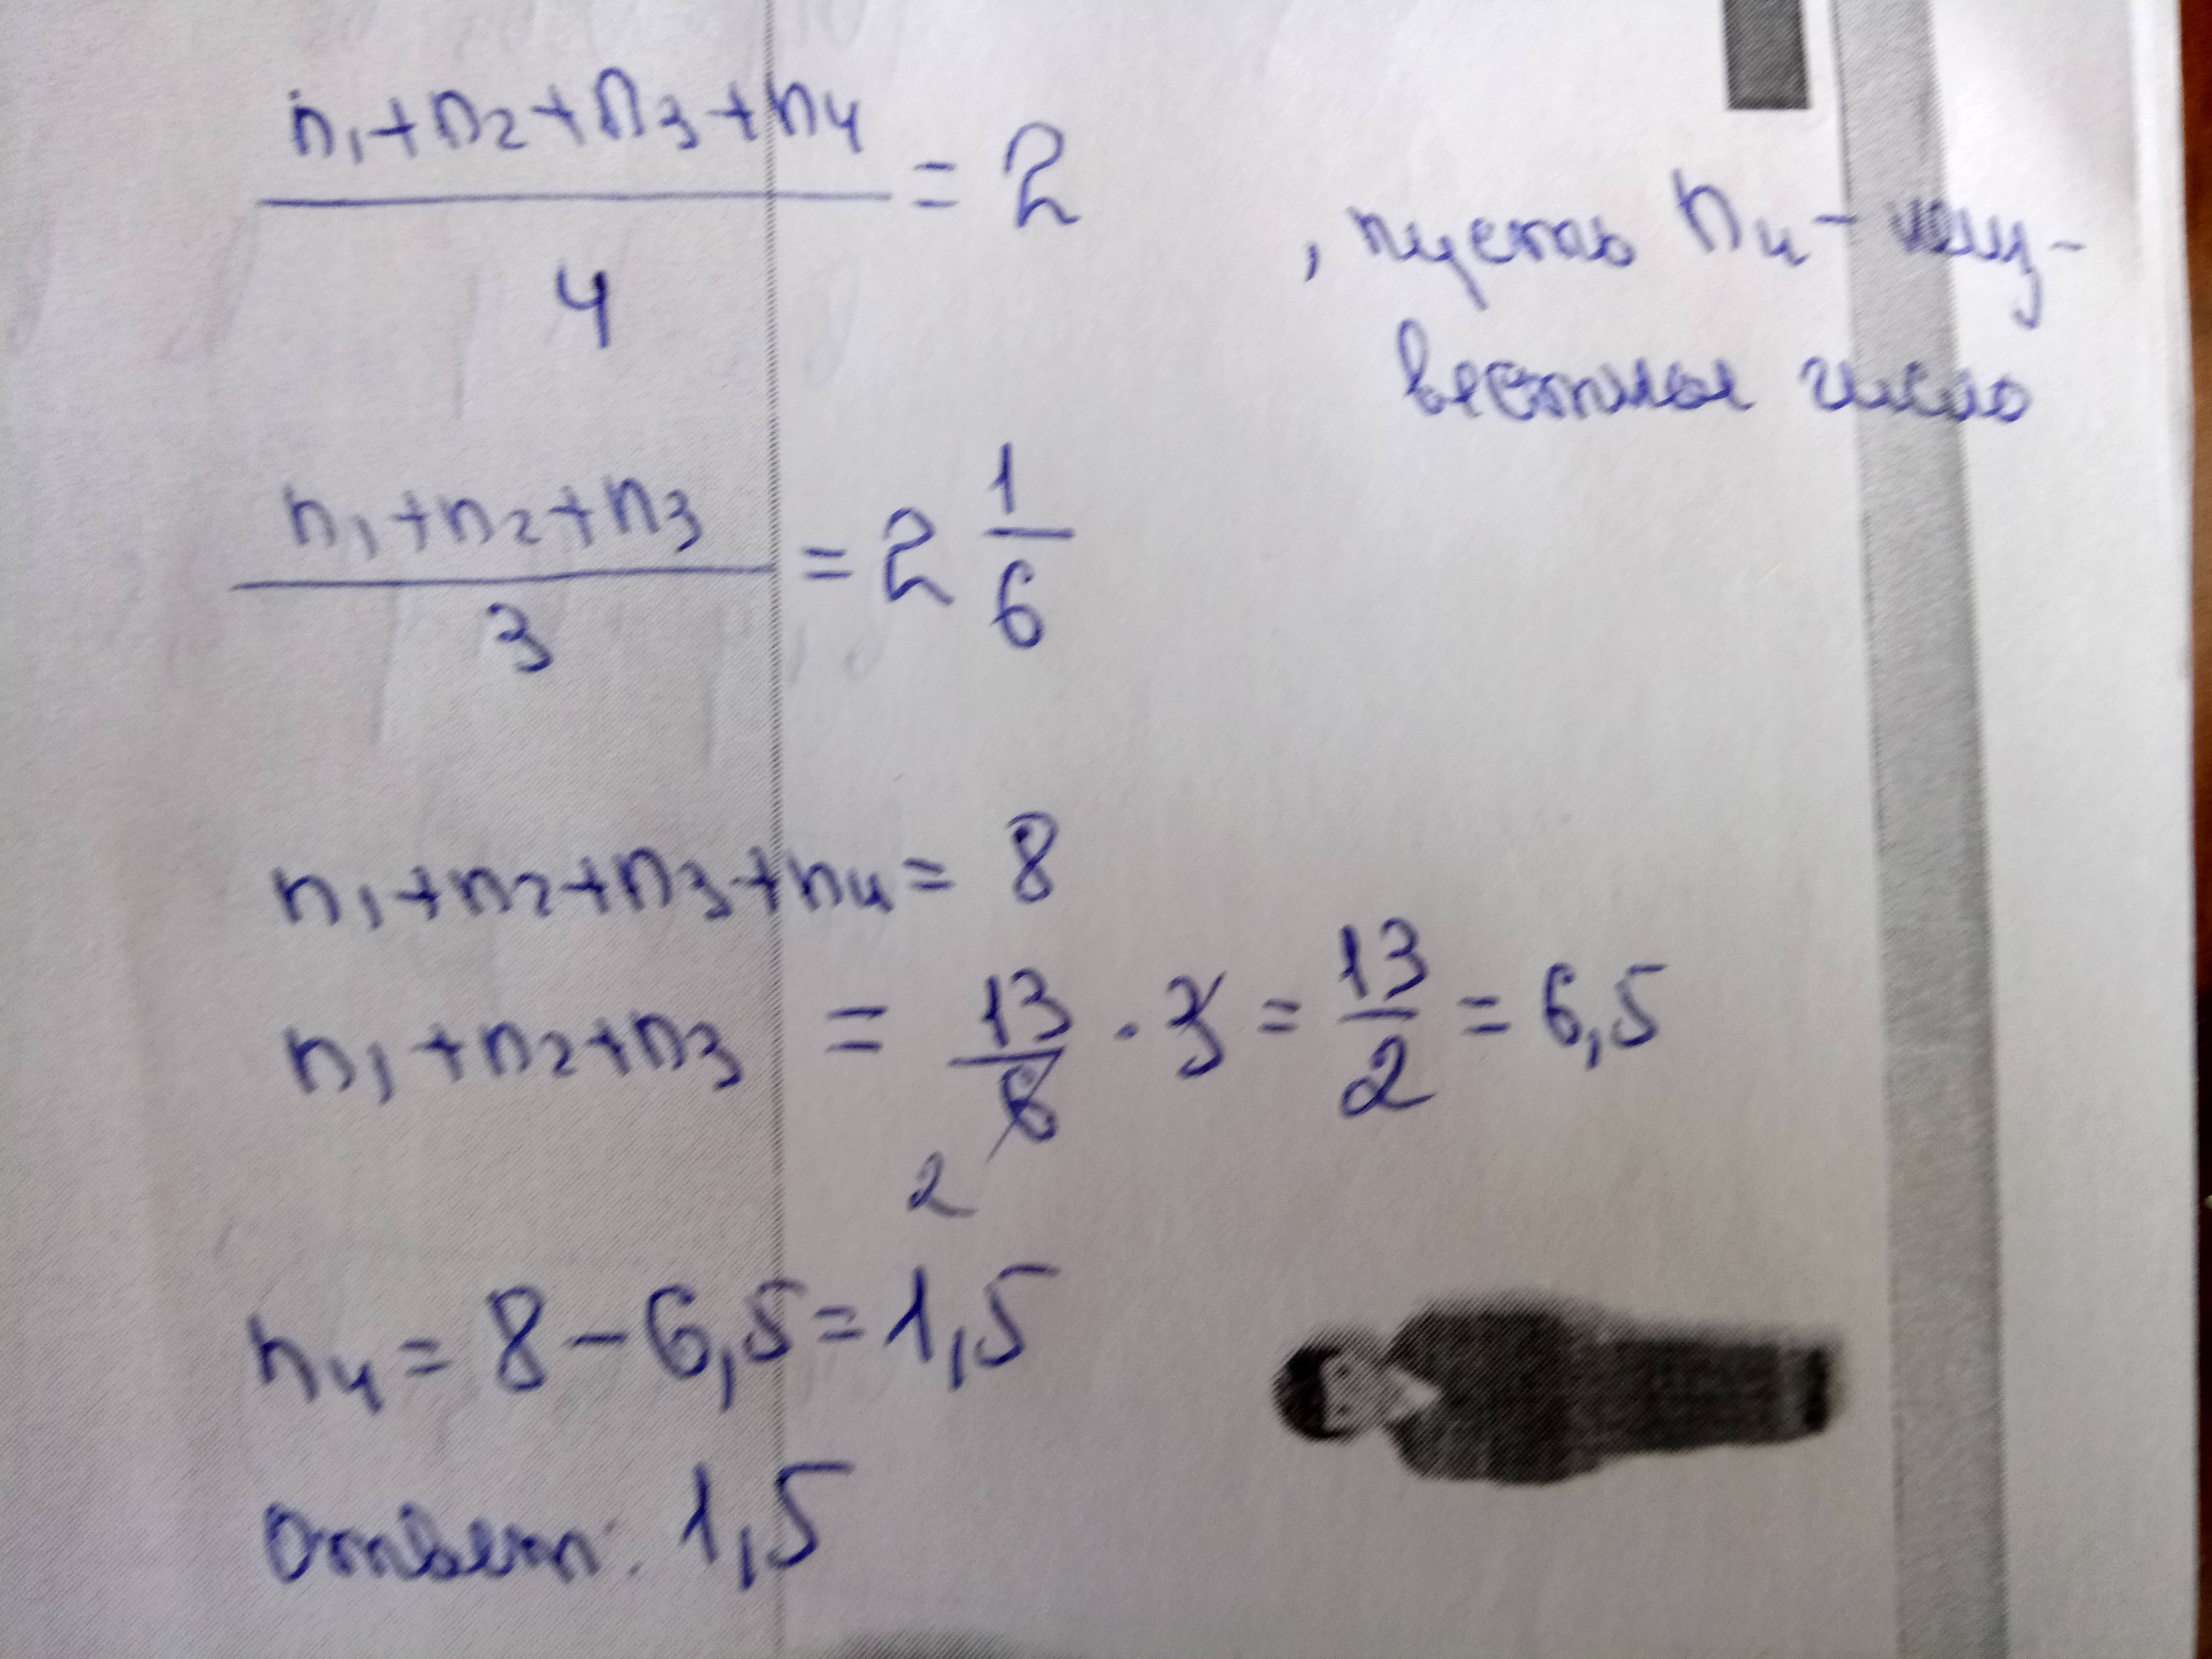 n₁+n₂+n₃+n₄
——— = 2
4
, пусть n₄ – неиз-
вестное число
n₁+n₂+n₃
——— = 2 1/6
3
n₁+n₂+n₃+n₄ = 8
n₁+n₂+n₃ = 13/6 · 3 = 13/2 = 6,5
2
n₄ = 8 – 6,5 = 1,5
Ответ: 1,5